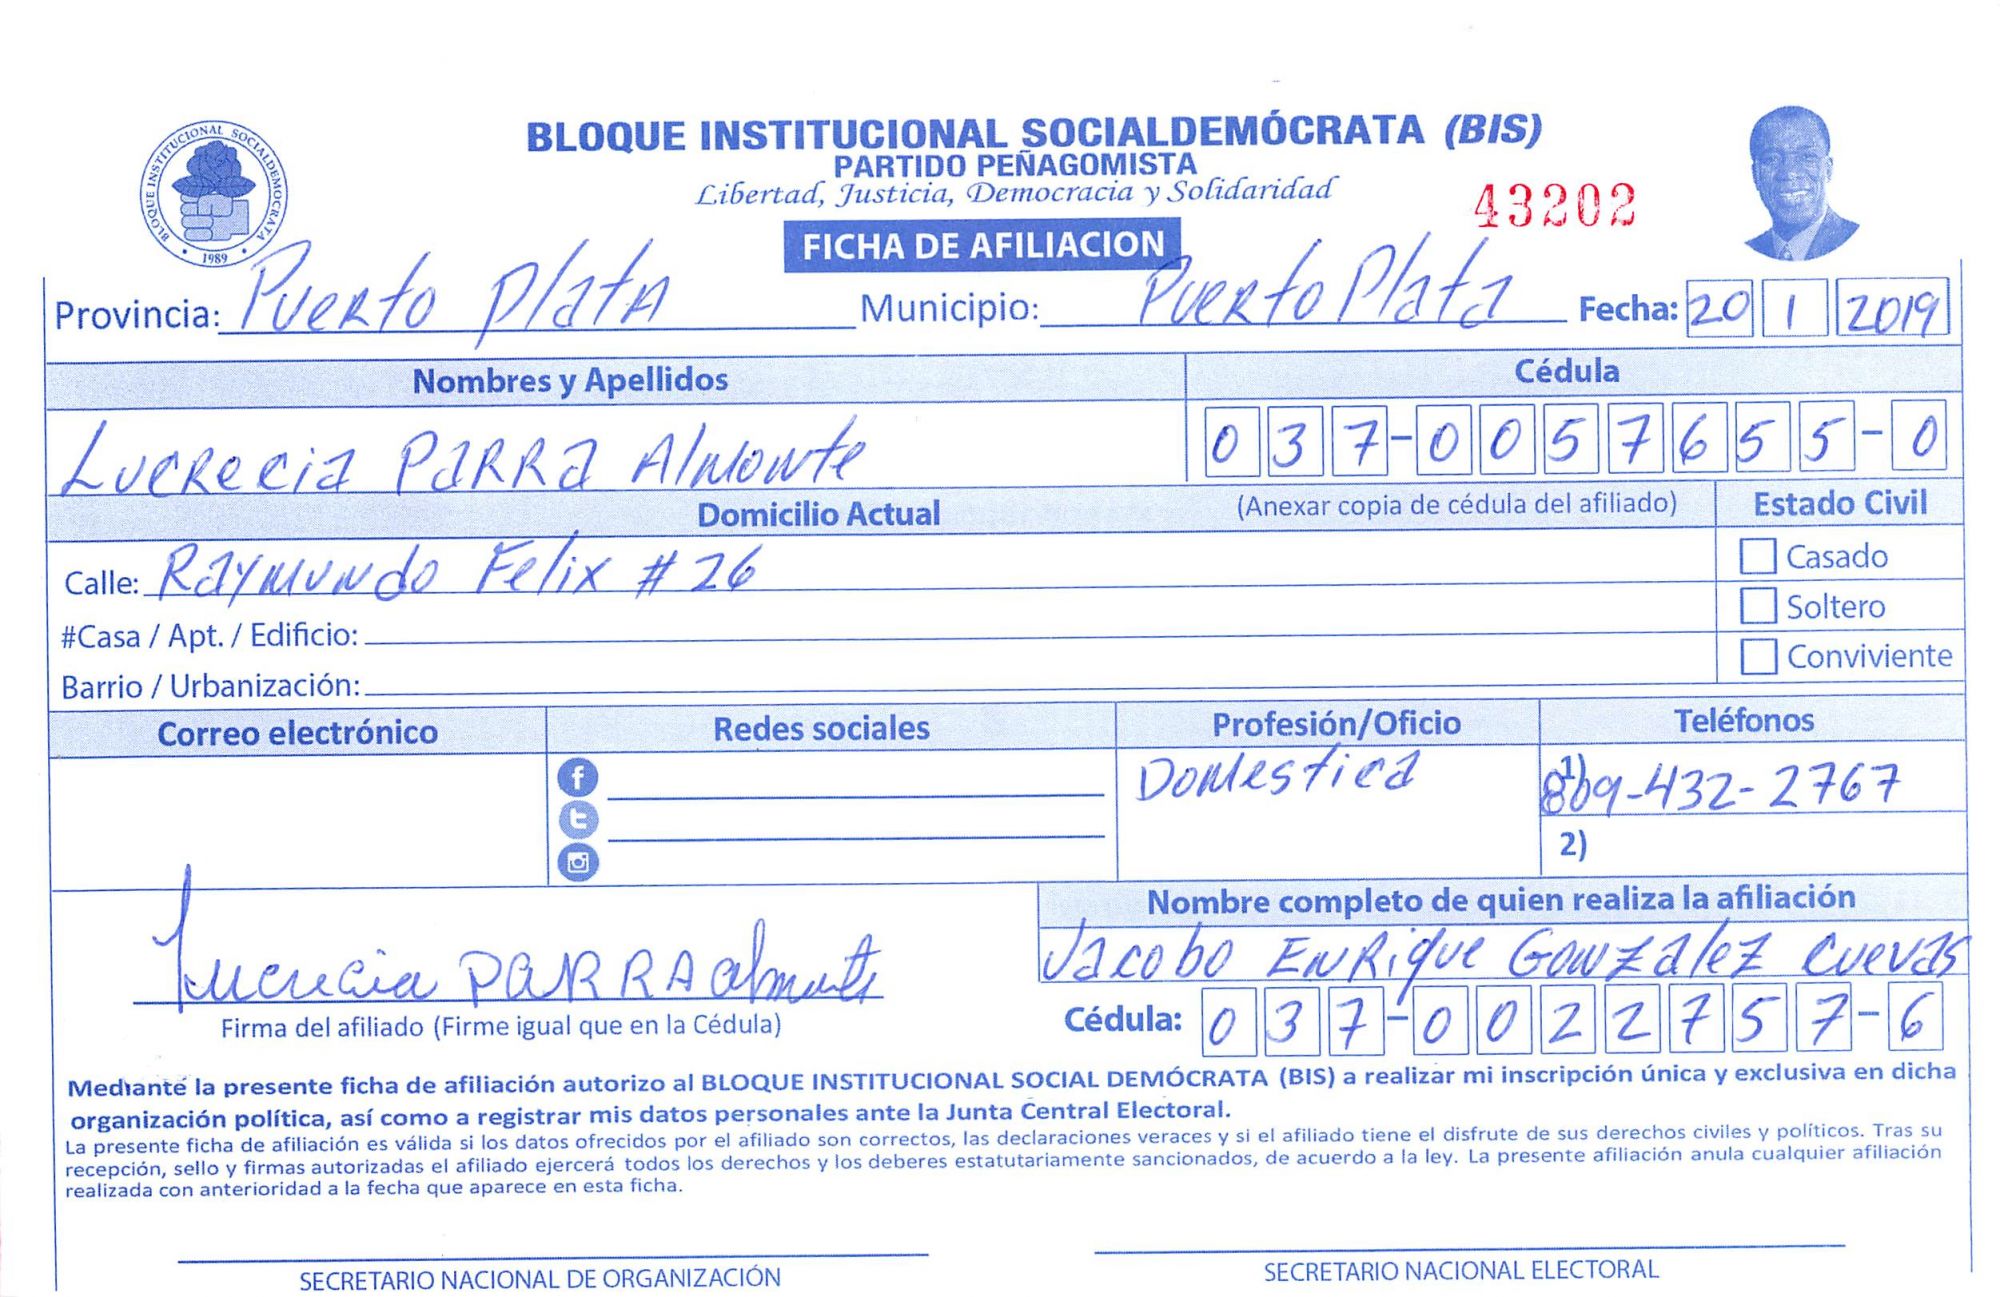 BLOQUE INSTITUCIONAL SOCIALDEMOCRATA
1989
BLOQUE INSTITUCIONAL SOCIALDEMÓCRATA (BIS)
PARTIDO PEÑAGOMISTA
Libertad, Justicia, Democracia y Solidaridad
43202
FICHA DE AFILIACION
Provincia: Puerto Plata Municipio: Puerto Plata Fecha: 20 1 2019
Nombres y Apellidos Cédula
Lucrecia Parra Almonte 037-0057655-0
Domicilio Actual (Anexar copia de cédula del afiliado) Estado Civil
Calle: Raymundo Felix # 26 Casado
#Casa / Apt. / Edificio: Soltero
Barrio / Urbanización: Conviviente
Correo electrónico Redes sociales Profesión/Oficio Teléfonos
Domestica 1) 809-432-2767
2)
Nombre completo de quien realiza la afiliación
Jacobo Enrique Gonzalez Cuevas
Lucrecia PARRA almonte
Firma del afiliado (Firme igual que en la Cédula) Cédula: 037-0022757-6
Mediante la presente ficha de afiliación autorizo al BLOQUE INSTITUCIONAL SOCIAL DEMÓCRATA (BIS) a realizar mi inscripción única y exclusiva en dicha
organización política, así como a registrar mis datos personales ante la Junta Central Electoral.
La presente ficha de afiliación es válida si los datos ofrecidos por el afiliado son correctos, las declaraciones veraces y si el afiliado tiene el disfrute de sus derechos civiles y políticos. Tras su
recepción, sello y firmas autorizadas el afiliado ejercerá todos los derechos y los deberes estatutariamente sancionados, de acuerdo a la ley. La presente afiliación anula cualquier afiliación
realizada con anterioridad a la fecha que aparece en esta ficha.
SECRETARIO NACIONAL DE ORGANIZACIÓN SECRETARIO NACIONAL ELECTORAL